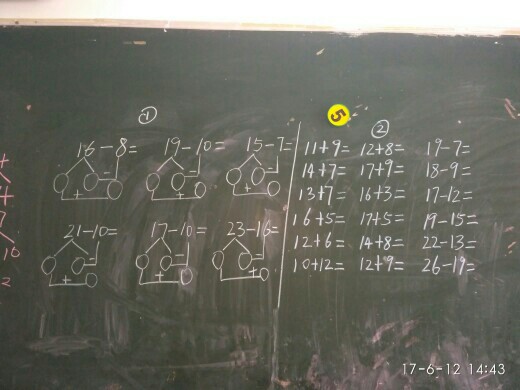 ①
16-8= 19-10= 15-7=
21-10= 17-10= 23-16=
5
②
11+9= 12+8= 19-7=
14+7= 17+9= 18-9=
13+7= 16+3= 17-12=
16+5= 17+5= 19-15=
12+6= 14+8= 22-13=
10+12= 12+9= 26-19=
17-6-12 14:43